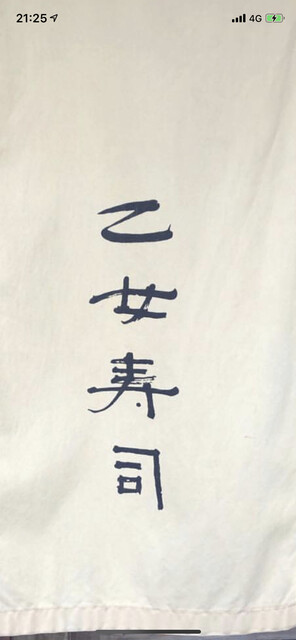 21:25
4G
乙女寿司